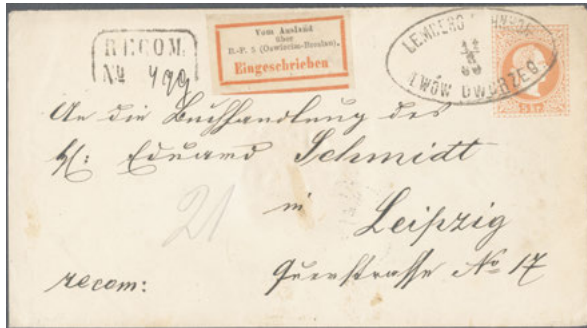 RECOM.
No 499
Vom Ausland
über
B.-P. 5 (Oswiecim-Breslau).
Eingeschrieben
LEMBERG BAHNHOF
LWÓW DWORZEC
An die Buchhandlung des
H: Eduard Schmidt
in
Leipzig
21
recom:
Querstrasse No 17